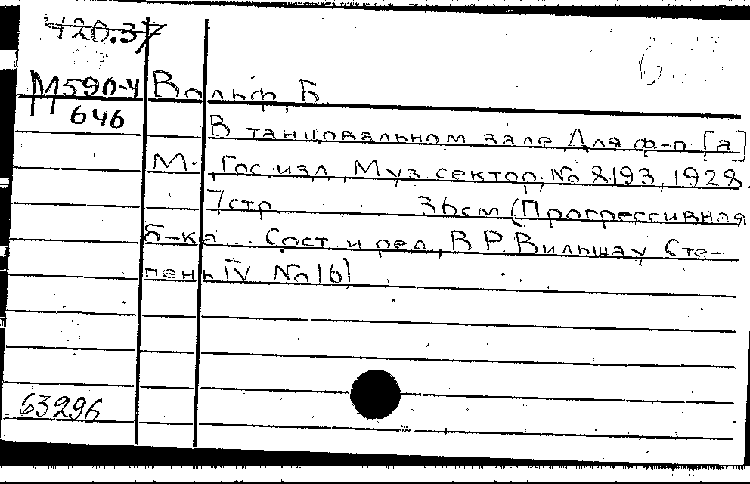 420.37
М590-4 Вольф, Б.
646
В танцовальном зале Для ф-п [а]
М., Гос. изд., Муз. сектор, № 8193, 1928.
7 стр. 36 см (Прогрессивная
б-ка. Сост. и ред. В. Р. Вильшау Сте-
пень IV № 16)
63296